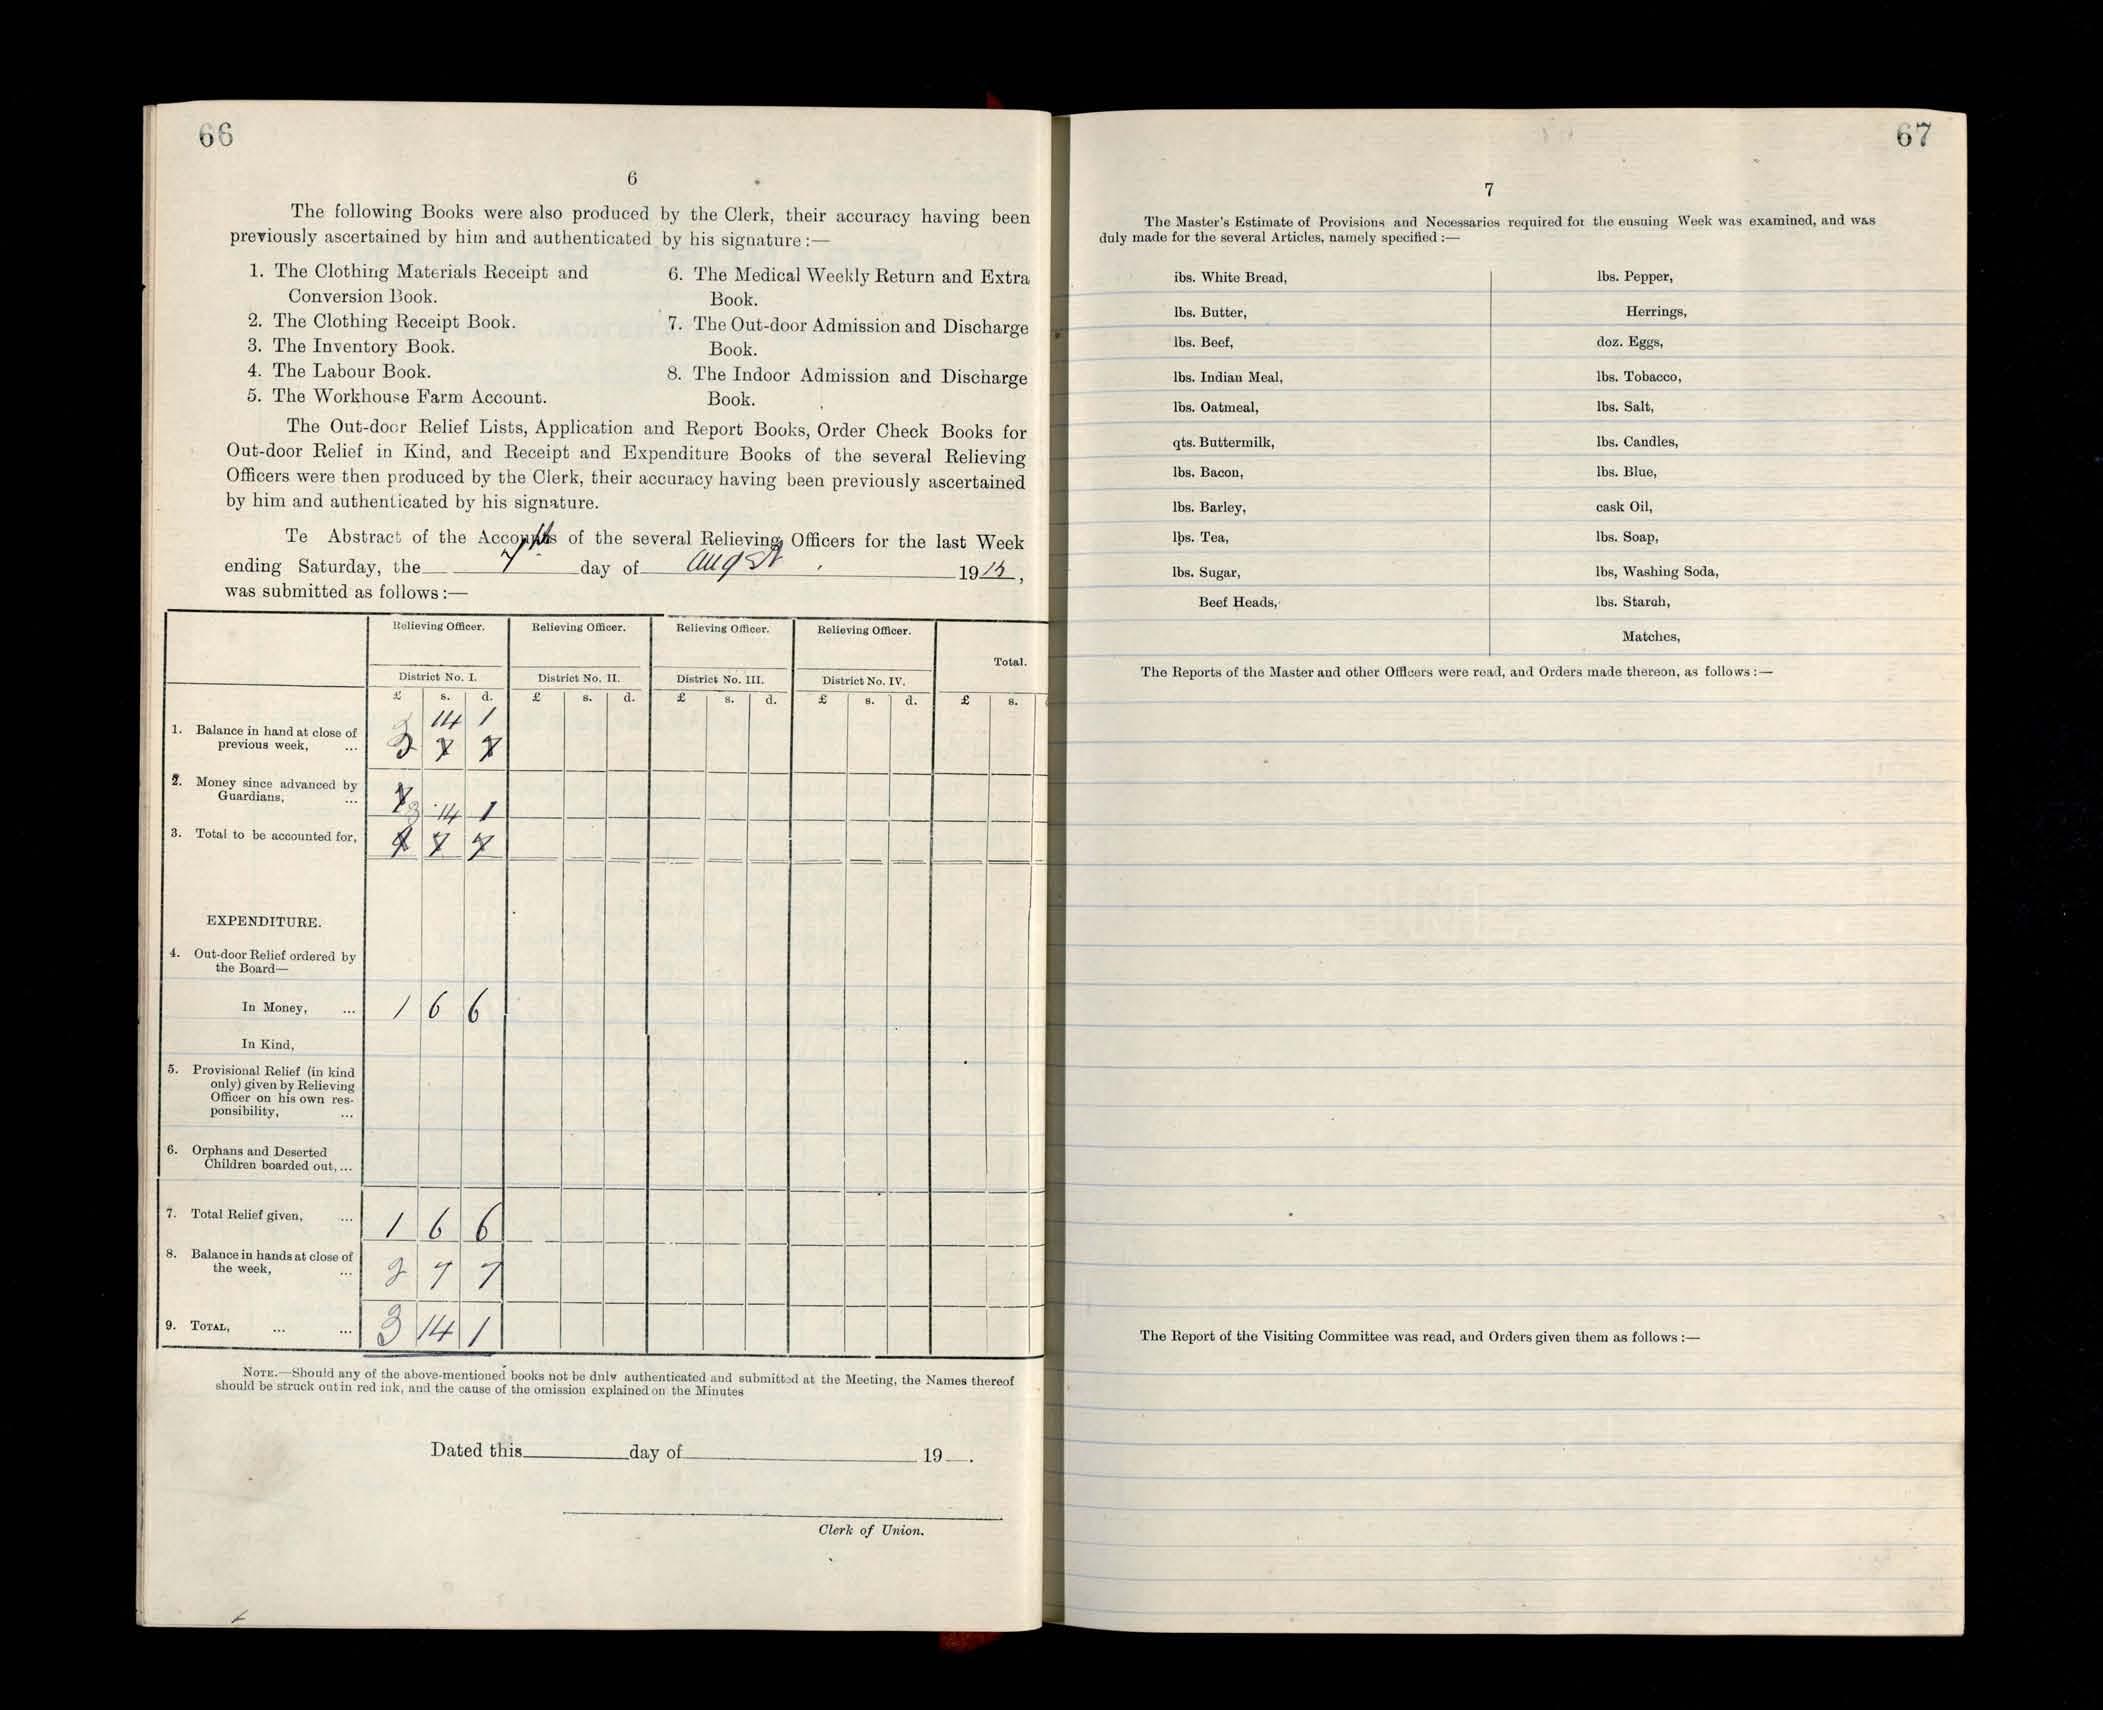 66
6
The following Books were also produced by the Clerk, their accuracy having been
previously ascertained by him and authenticated by his signature :—
1. The Clothing Materials Receipt and
Conversion Book.
2. The Clothing Receipt Book.
3. The Inventory Book.
4. The Labour Book.
5. The Workhouse Farm Account.
6. The Medical Weekly Return and Extra
Book.
7. The Out-door Admission and Discharge
Book.
8. The Indoor Admission and Discharge
Book.
The Out-door Relief Lists, Application and Report Books, Order Check Books for
Out-door Relief in Kind, and Receipt and Expenditure Books of the several Relieving
Officers were then produced by the Clerk, their accuracy having been previously ascertained
by him and authenticated by his signature.
Te Abstract of the Accounts of the several Relieving Officers for the last Week
ending Saturday, the 7th day of Augst 19 ,
was submitted as follows :—
Relieving Officer. Relieving Officer. Relieving Officer. Relieving Officer.
Total.
District No. I. District No. II. District No. III. District No. IV.
£ s. d. £ s. d. £ s. d. £ s. d. £ s.
3 14 1
1. Balance in hand at close of
previous week, ... 2 7 7
2. Money since advanced by
Guardians, ...
3 14 1
3. Total to be accounted for, 7 7
EXPENDITURE.
4. Out-door Relief ordered by
the Board—
In Money, ... 1 6 6
In Kind,
5. Provisional Relief (in kind
only) given by Relieving
Officer on his own res-
ponsibility, ...
6. Orphans and Deserted
Children boarded out, ...
7. Total Relief given, ... 1 6 6
8. Balance in hands at close of
the week, ... 2 7 7
9. TOTAL, ... ... 3 14 1
NOTE.—Should any of the above-mentioned books not be duly authenticated and submitted at the Meeting, the Names thereof
should be struck out in red ink, and the cause of the omission explained on the Minutes
Dated this day of 19 .
Clerk of Union.
67
7
The Master's Estimate of Provisions and Necessaries required for the ensuing Week was examined, and was
duly made for the several Articles, namely specified :—
lbs. White Bread,
lbs. Butter,
lbs. Beef,
lbs. Indian Meal,
lbs. Oatmeal,
qts. Buttermilk,
lbs. Bacon,
lbs. Barley,
lbs. Tea,
lbs. Sugar,
Beef Heads,
lbs. Pepper,
Herrings,
doz. Eggs,
lbs. Tobacco,
lbs. Salt,
lbs. Candles,
lbs. Blue,
cask Oil,
lbs. Soap,
lbs, Washing Soda,
lbs. Starch,
Matches,
The Reports of the Master and other Officers were read, and Orders made thereon, as follows :—
The Report of the Visiting Committee was read, and Orders given them as follows :—